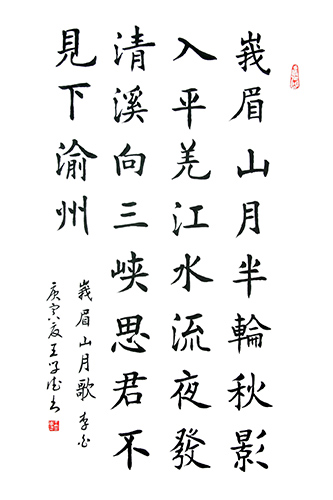 峩眉山月半輪秋影
入平羌江水流夜發
清溪向三峽思君不
見下渝州
峩眉山月歌 李白
庚寅八友王學